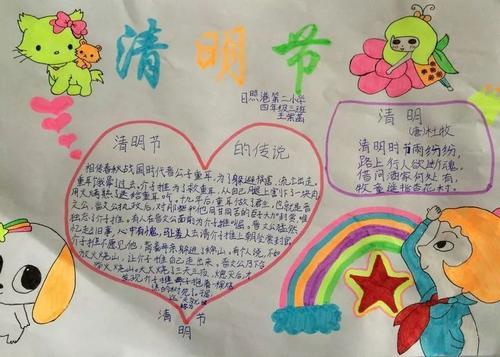 清明节
日照港第二小学
四年级三班
清明
唐·杜牧
清明时节雨纷纷,
路上行人欲断魂。
借问酒家何处有,
牧童遥指杏花村。
清明节 的传说
相传春秋战国时代晋公子重耳,为了躲避祸害,流亡出走。
重耳饿晕过去。介子推为了救重耳,从自己腿上割下了一块肉
用火烤熟了送给重耳吃。十九年后,重耳做了君主,也就是晋
文公,晋文公执政后,对那些和他同甘共苦的臣子大加封赏,唯
独忘了介子推。有人在晋文公面前为介子推叫屈。晋文公猛然
忆起旧事,心中有愧,马上差人去请介子推上朝受赏封官。
介子推不愿见他,背着母亲躲进了绵山。有人说,不如
放火烧山,让介子推自己走出来。晋文公乃下令
举火烧山。大火烧了三天三夜,熄灭后才
发现介子推母子抱着一棵烧
焦的柳树死了
清明节